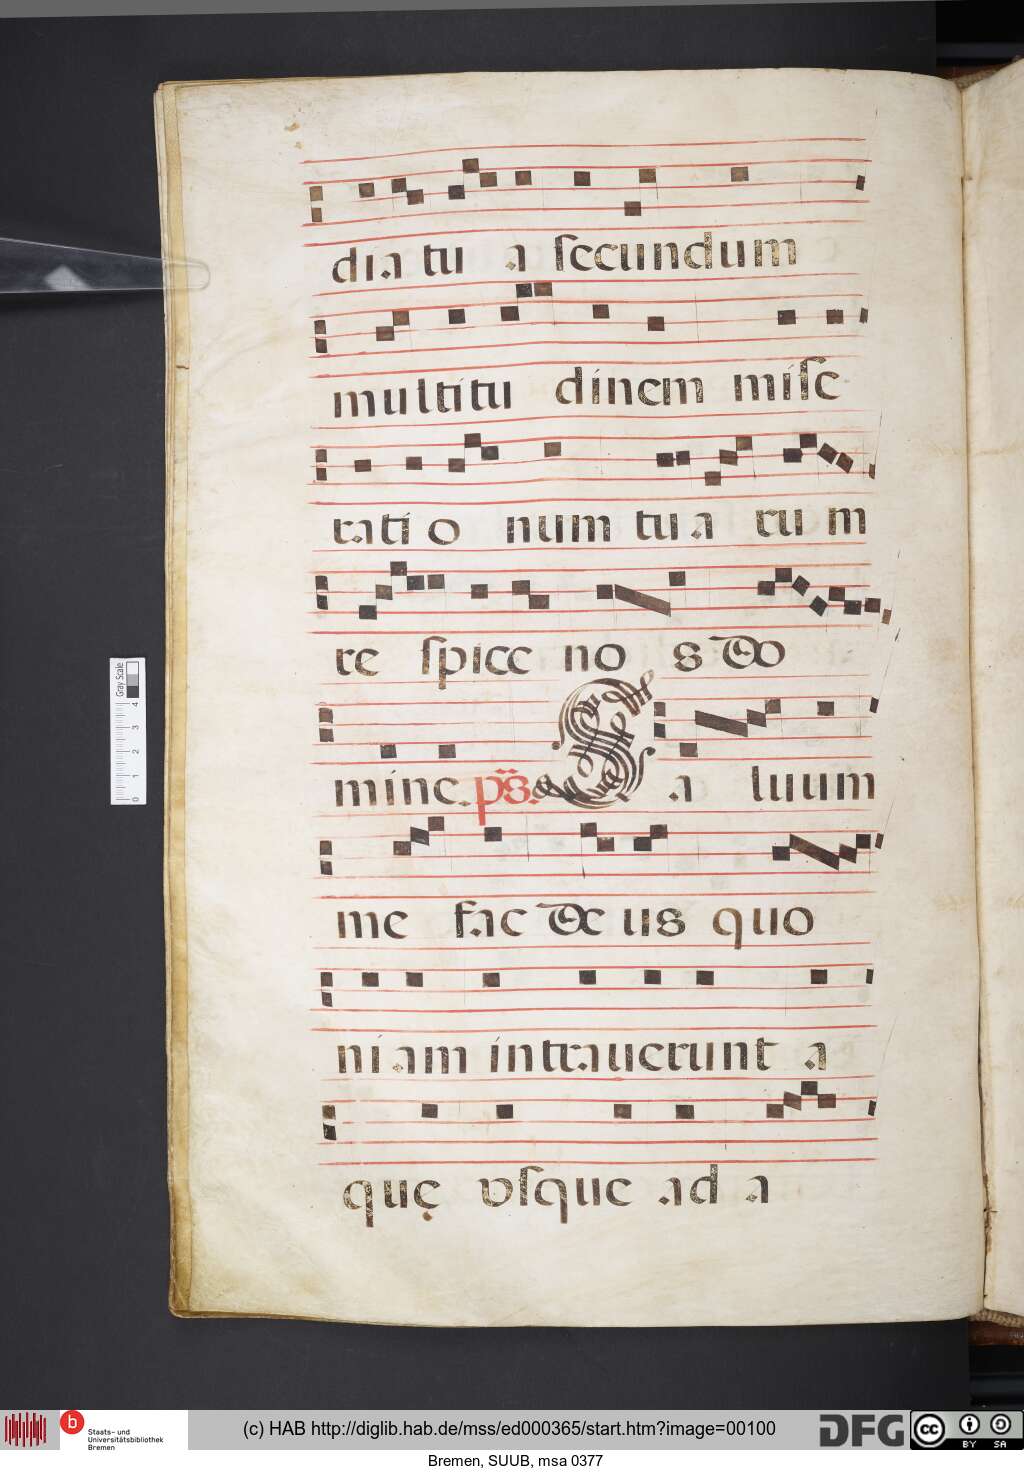 dia tu a secundum
multitu dinem mise
rati o num tu a ru m
re spice no s do
mine. ps. Sa luum
me fac de us quo
niam intrauerunt a
quę vsque ad a
Gray Scale
0 1 2 3 4
b
Staats- und
Universitätsbibliothek
Bremen
(c) HAB http://diglib.hab.de/mss/ed000365/start.htm?image=00100
DFG
cc BY SA
Bremen, SUUB, msa 0377